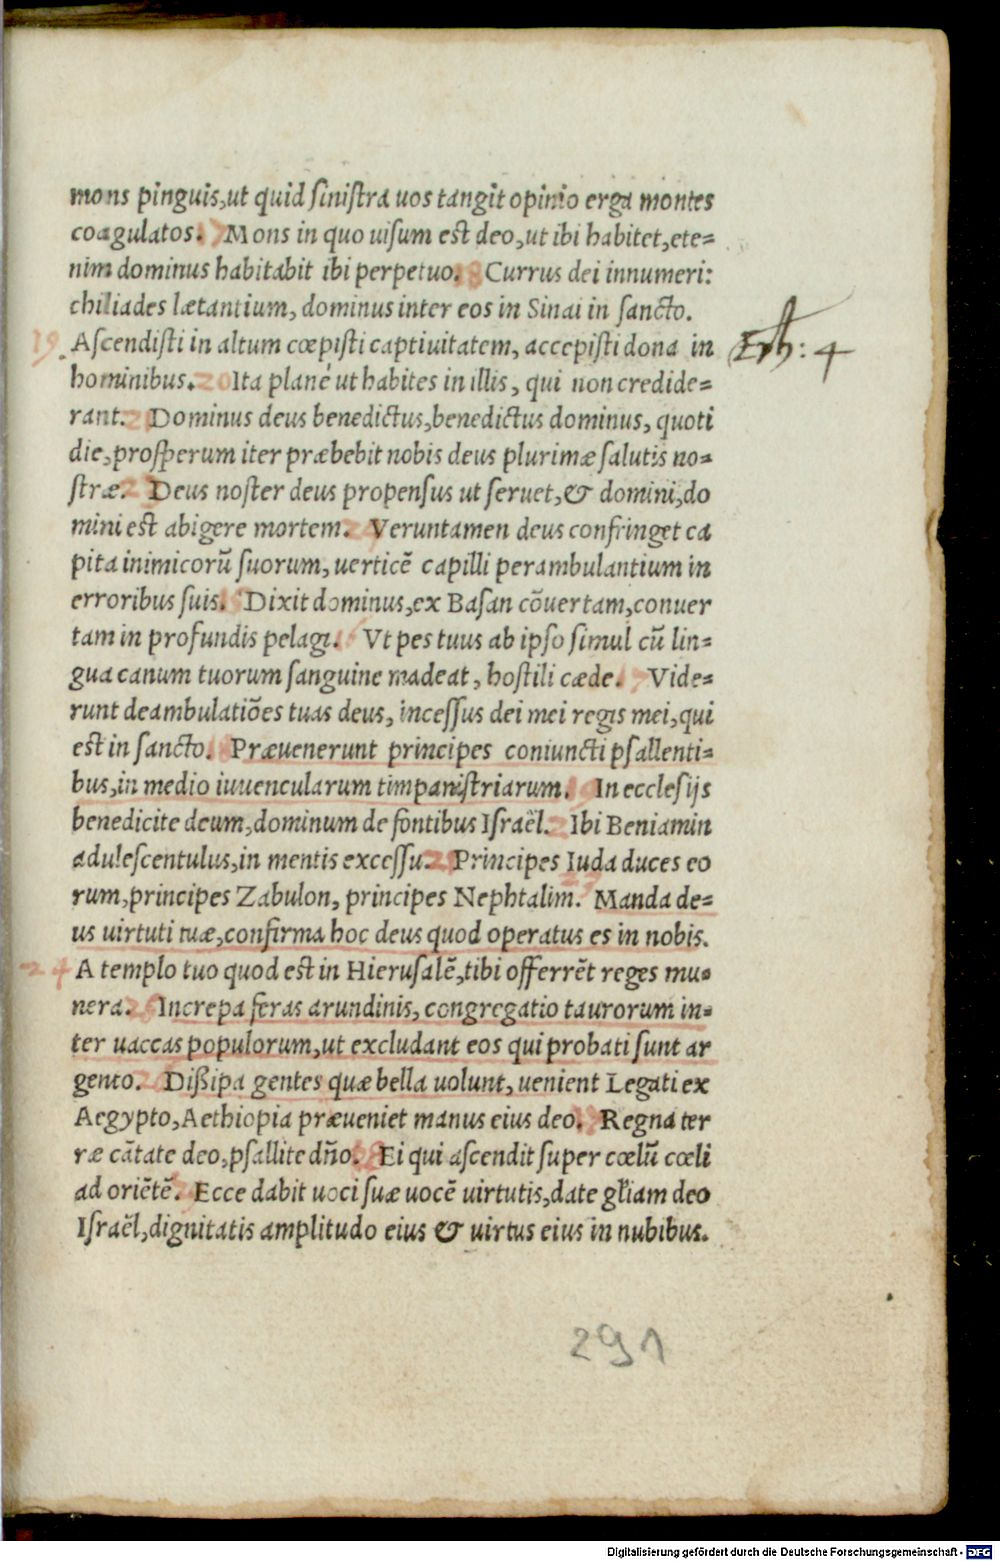 mons pinguis,ut quid sinistra uos tangit opinio erga montes
coagulatos. Mons in quo uisum est deo,ut ibi habitet,ete=
nim dominus habitabit ibi perpetuo. 8 Currus dei innumeri:
chiliades lætantium, dominus inter eos in Sinai in sancto.
19. Ascendisti in altum cœpisti captiuitatem, accepisti dona in
Eph: 4
hominibus. 20 Ita planè ut habites in illis, qui non credide=
rant. Dominus deus benedictus,benedictus dominus, quoti
die,prosperum iter præbebit nobis deus plurimæ salutis no=
stræ. 2 Deus noster deus propensus ut seruet,& domini,do
mini est abigere mortem. 2 Veruntamen deus confringet ca
pita inimicorū suorum, uerticē capilli perambulantium in
erroribus suis. Dixit dominus,ex Basan cōuertam,conuer
tam in profundis pelagi. Vt pes tuus ab ipso simul cū lin=
gua canum tuorum sanguine madeat, hostili cæde. Vide=
runt deambulatiōes tuas deus, incessus dei mei regis mei,qui
est in sancto. Præuenerunt principes coniuncti psallenti=
bus,in medio iuuencularum timpanistriarum. In ecclesijs
benedicite deum,dominum de fontibus Israël. Ibi Beniamin
adulescentulus,in mentis excessu. 2 Principes Iuda duces eo
rum,principes Zabulon, principes Nephtalim. Manda de=
us uirtuti tuæ,confirma hoc deus quod operatus es in nobis.
24 A templo tuo quod est in Hierusalē,tibi offerrēt reges mu=
nera. Increpa feras arundinis, congregatio taurorum in=
ter uaccas populorum,ut excludant eos qui probati sunt ar
gento. 2 Dißipa gentes quæ bella uolunt, uenient Legati ex
Aegypto,Aethiopia præueniet manus eius deo. Regna ter
ræ cātate deo,psallite dño. 8 Ei qui ascendit super cœlū cœli
ad oriētē. Ecce dabit uoci suæ uocē uirtutis,date gl̃iam deo
Israël,dignitatis amplitudo eius & uirtus eius in nubibus.
291
Digitalisierung gefördert durch die Deutsche Forschungsgemeinschaft - DFG